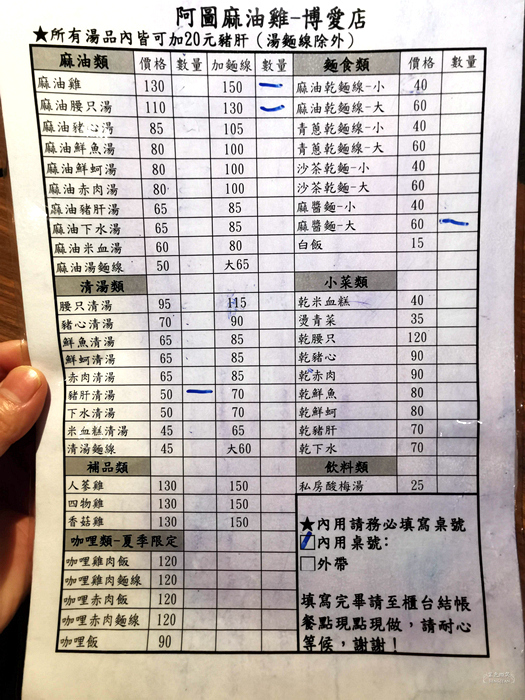 阿圖麻油雞-博愛店
★所有湯品內皆可加20元豬肝(湯麵線除外)
麻油類 價格 數量 加麵線 數量
麻油雞 130 150
麻油腰只湯 110 130
麻油豬心湯 85 105
麻油鮮魚湯 80 100
麻油鮮蚵湯 80 100
麻油赤肉湯 80 100
麻油豬肝湯 65 85
麻油下水湯 65 85
麻油米血湯 60 80
麻油湯麵線 50 大65
清湯類
腰只清湯 95 115
豬心清湯 70 90
鮮魚清湯 65 85
鮮蚵清湯 65 85
赤肉清湯 65 85
豬肝清湯 50 70
下水清湯 50 70
米血糕清湯 45 65
清湯麵線 45 大60
補品類
人蔘雞 130 150
四物雞 130 150
香菇雞 130 150
咖哩類-夏季限定
咖哩雞肉飯 120
咖哩雞肉麵線 120
咖哩赤肉飯 120
咖哩赤肉麵線 120
咖哩飯 90
麵食類 價格 數量
麻油乾麵線-小 40
麻油乾麵線-大 60
青蔥乾麵線-小 40
青蔥乾麵線-大 60
沙茶乾麵-小 40
沙茶乾麵-大 60
麻醬麵-小 40
麻醬麵-大 60
白飯 15
小菜類
乾米血糕 40
燙青菜 35
乾腰只 120
乾豬心 90
乾赤肉 90
乾鮮魚 80
乾鮮蚵 80
乾豬肝 70
乾下水 70
飲料類
私房酸梅湯 25
★內用請務必填寫桌號
內用桌號:
外帶
填寫完畢請至櫃台結帳
餐點現點現做,請耐心
等候,謝謝!